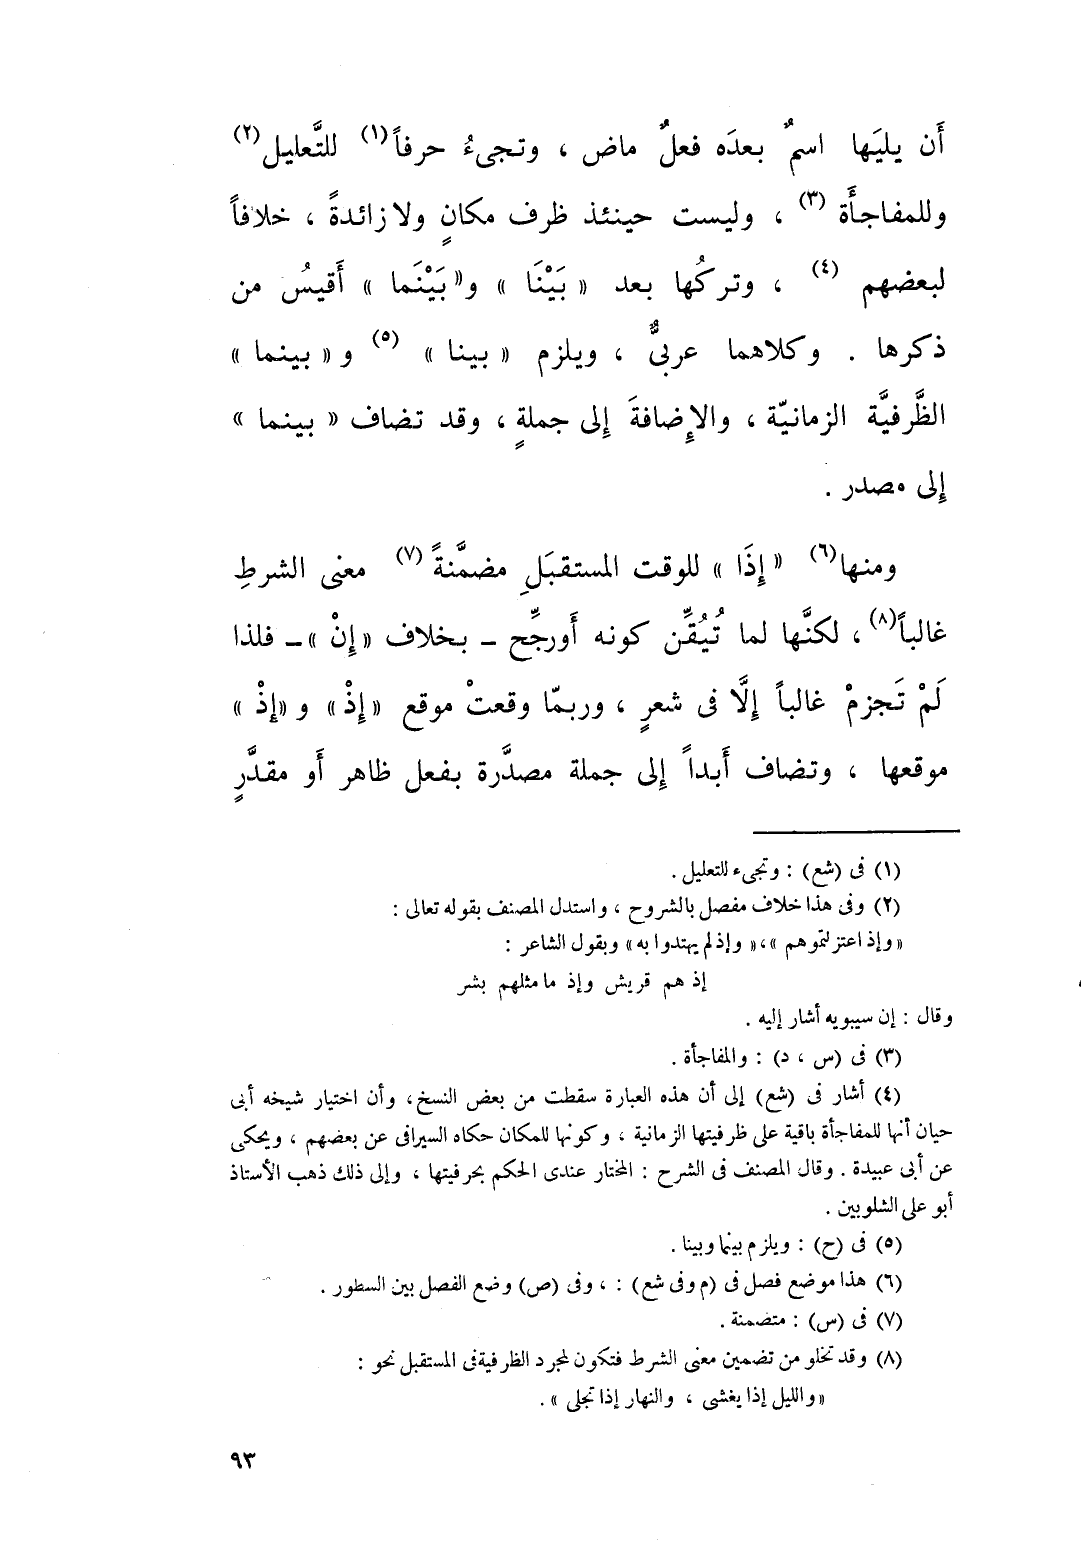 أَن يليَها اسمٌ بعدَه فعلٌ ماض ، وتجىءُ حرفاً(١) للتَّعليل(٢)
وللمفاجأَة(٣) ، وليست حينئذ ظرف مكانٍ ولا زائدةً ، خلافاً
لبعضهم(٤) ، وتركُها بعد « بَيْنَا » و« بَيْنَما » أَقيسُ من
ذكرها . وكلاهما عربىٌّ ، ويلزم « بينا » (٥) و « بينما »
الظَّرفيَّة الزمانيّة ، والإِضافةَ إِلى جملةٍ ، وقد تضاف « بينما »
إِلى مصدر .
ومنها(٦) « إِذَا » للوقت المستقبَلِ مضمَّنةً(٧) معنى الشرطِ
غالباً(٨) ، لكنَّها لما تُيُقِّن كونه أَورجِّح ــ بخلاف « إِنْ » ــ فلذا
لَمْ تَجزمْ غالباً إِلَّا فى شعرٍ ، وربمّا وقعتْ موقع « إِذْ » و « إِذْ »
موقعها ، وتضاف أَبداً إِلى جملة مصدَّرة بفعل ظاهر أَو مقدَّرٍ
(١) فى (شع) : وتجىء للتعليل .
(٢) وفى هذا خلاف مفصل بالشروح ، واستدل المصنف بقوله تعالى :
« وإذ اعتزلتموهم » ، « وإذ لم يهتدوا به » وبقول الشاعر :
إذ هم قريش وإذ ما مثلهم بشر
وقال : إن سيبويه أشار إليه .
(٣) فى (س ، د) : والمفاجأة .
(٤) أشار فى (شع) إلى أن هذه العبارة سقطت من بعض النسخ ، وأن اختيار شيخه أبى
حيان أنها للمفاجأة باقية على ظرفيتها الزمانية ، وكونها للمكان حكاه السيرافى عن بعضهم ، ويحكى
عن أبى عبيدة . وقال المصنف فى الشرح : المختار عندى الحكم بحرفيتها ، وإلى ذلك ذهب الأستاذ
أبو على الشلوبين .
(٥) فى (ح) : ويلزم بينما وبينا .
(٦) هذا موضع فصل فى (م وفى شع) : ، وفى (ص) وضع الفصل بين السطور .
(٧) فى (س) : متضمنة .
(٨) وقد تخلو من تضمين معنى الشرط فتكون لمجرد الظرفية فى المستقبل نحو :
« والليل إذا يغشى ، والنهار إذا تجلى » .
٩٣